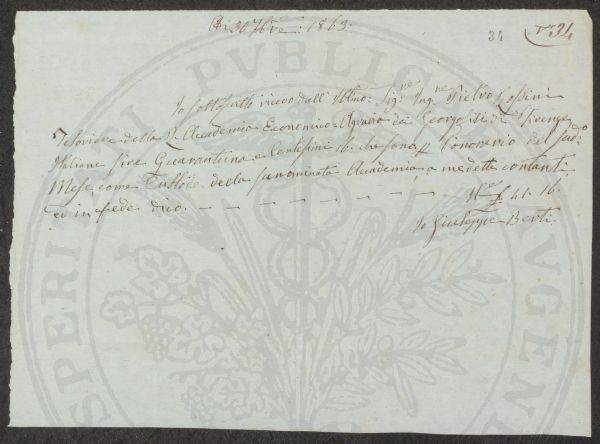 A dì 30 7bre: 1863.
34
N° 34
Io sottoscritto ricevo dall' Illmo: Sigre Ingre Pietro Rossini
Tesoriere della R. Accademia Economico-Agraria dei Georgofili di Firenze
Italiane Lire Quarantuna e Centesimi 16. che sono p l'onorario del sud:o
Mese come della sunominata Accademia a me detti contanti
ed in fede dico. — — — — — — — £ 41. 16.
Io Giuseppe Berti.
PVBLIC
SPERITATI
AVGENDAE